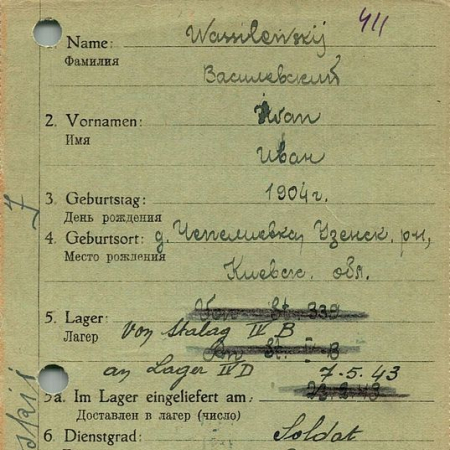 411
1. Name: Wassilewskij
Фамилия
Василевский
2. Vornamen: Iwan
Имя
Иван
3. Geburtstag: 1904г.
День рождения
4. Geburtsort: д. Чепелиевка, Узенск. р-н,
Место рождения
Киевск. обл.
5. Lager: Von St. 339
Лагер
von Stalag IV B
An St. IV B
an Lager IV D 7-5.43
5a. Im Lager eingeliefert am: 23.2.43
Доставлен в лагер (число)
6. Dienstgrad: Soldat